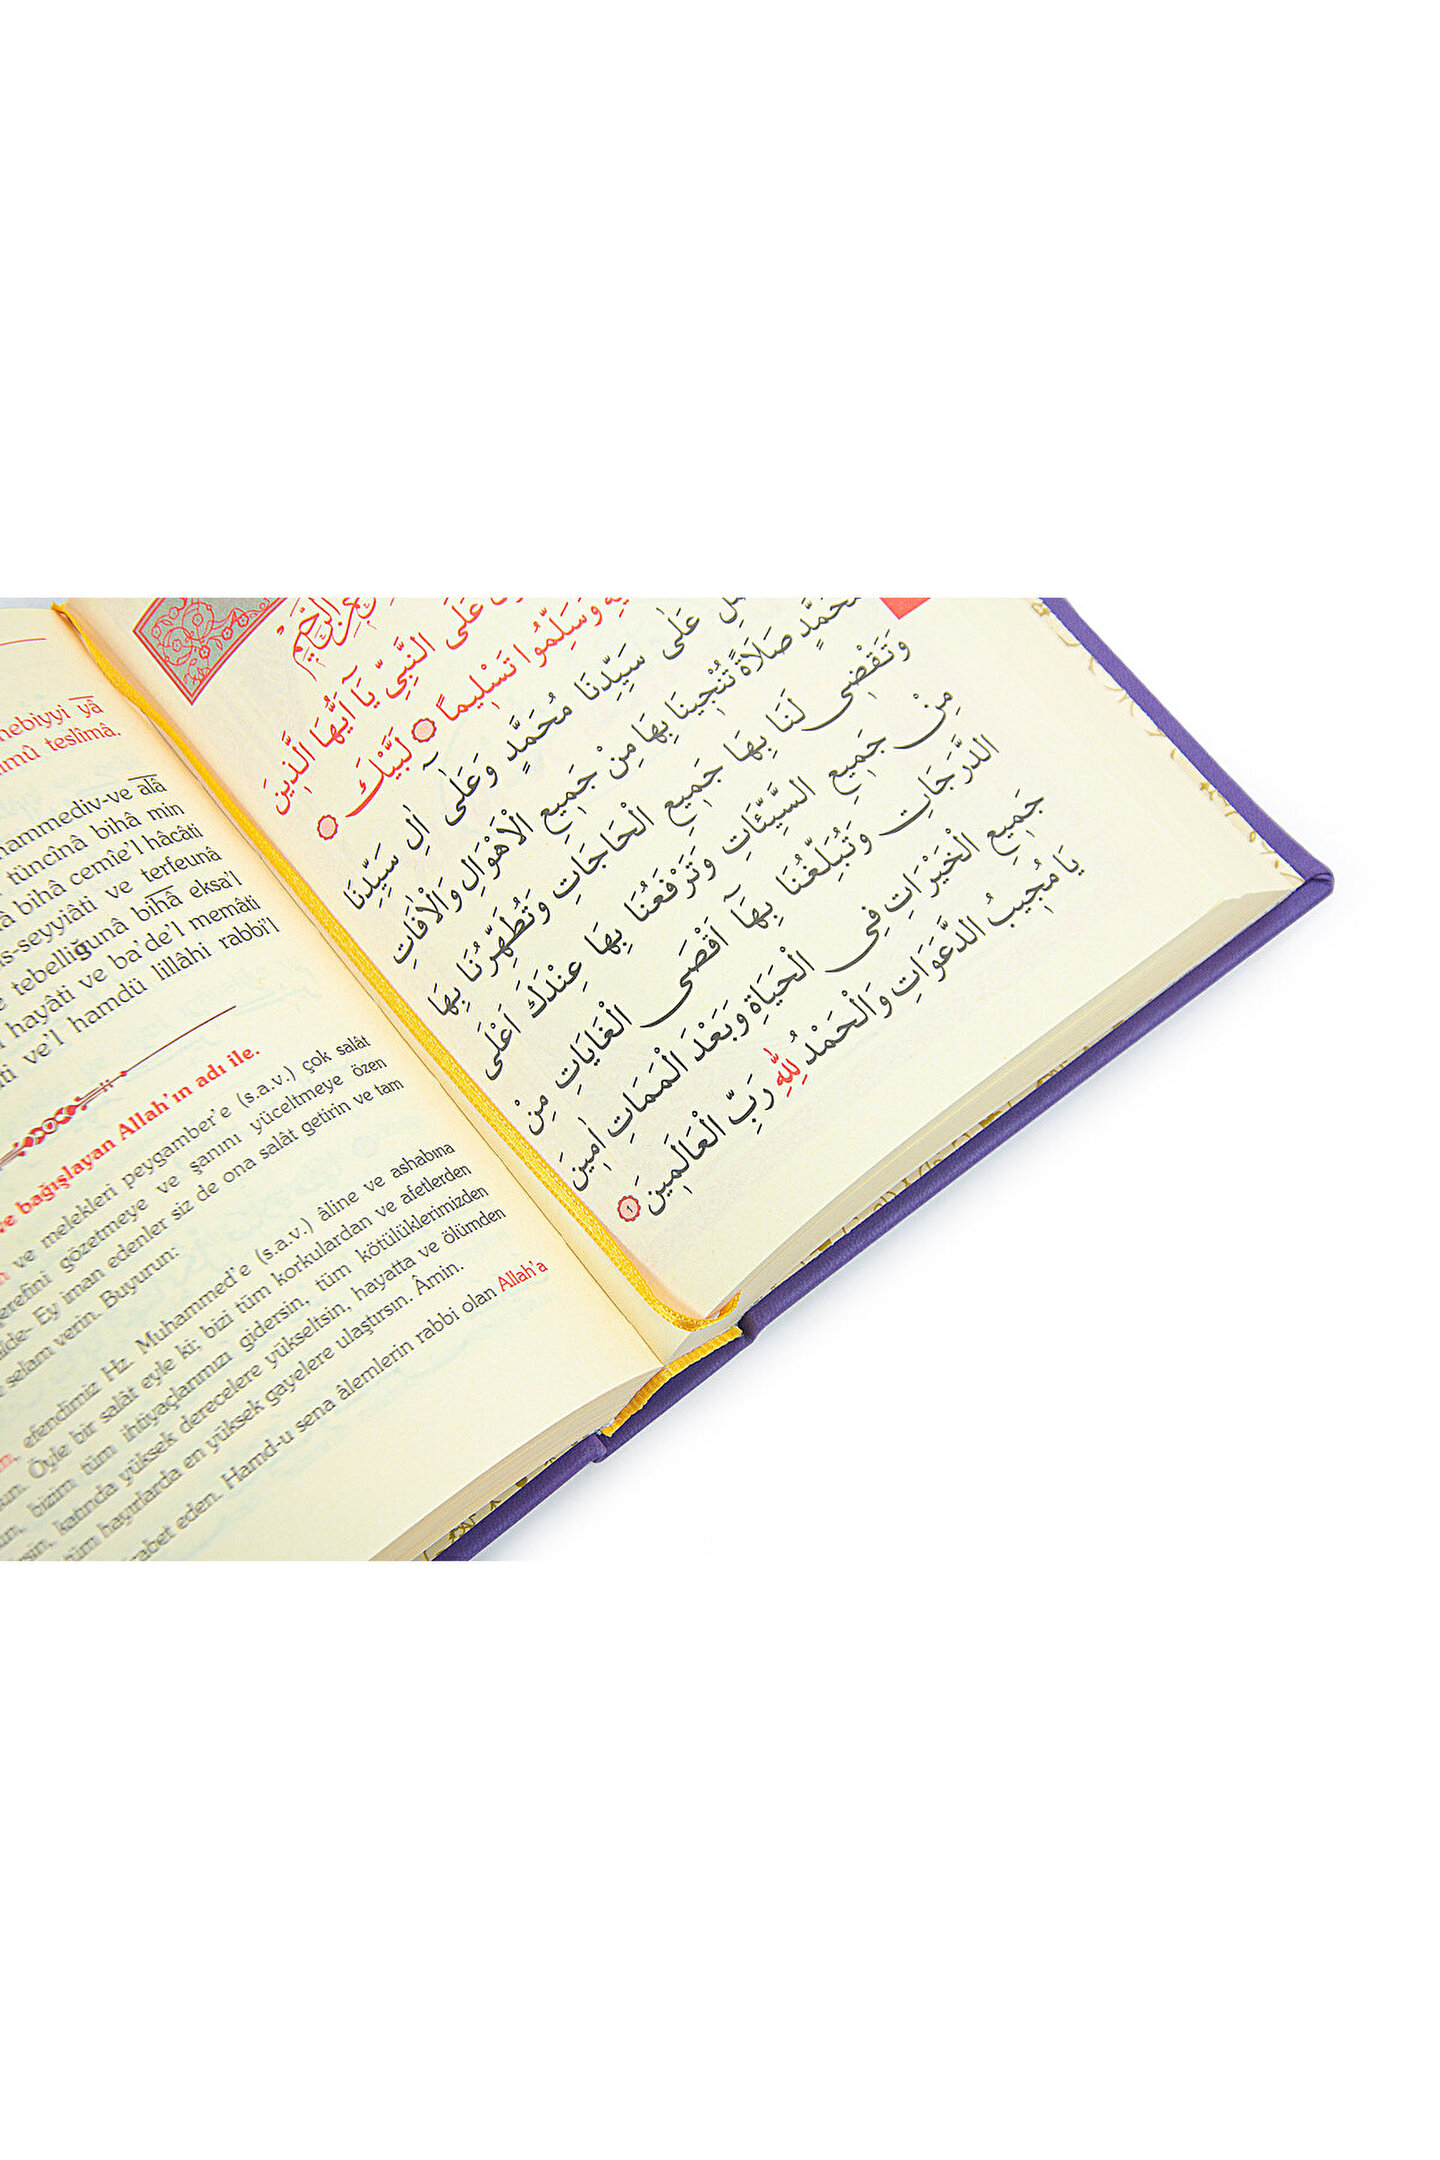 nebiyyi yâ
teslîmâ.
ve alâ
tüncînâ bihâ min
bihâ cemîe'l hâcâti
ve terfeunâ
tebelliğunâ bihâ eksa'l
hayâti ve ba'de'l memâti
ve'l hamdü lillâhi rabbi'l
ve bağışlayan Allah'ın adı ile.
ve melekleri peygamber'e (s.a.v.) çok salât
gözetmeye ve şanını yüceltmeye özen
Ey iman edenler siz de ona salât getirin ve tam
selam verin. Buyurun:
efendimiz Hz. Muhammed'e (s.a.v.) âline ve ashabına
Öyle bir salât eyle ki; bizi tüm korkulardan ve afetlerden
bizim tüm ihtiyaçlarımızı gidersin, tüm kötülüklerimizden
katında yüksek derecelere yükseltsin, hayatta ve ölümden
tüm hayırlarda en yüksek gayelere ulaştırsın. Âmin.
eden. Hamd-u sena âlemlerin rabbi olan Allah'a
الرَّحِيمِ
عَلَى النَّبِيِّ يَٓا اَيُّهَا الَّذِينَ
وَسَلِّمُوا تَسْلِيمًا لَبَّيْكَ
عَلٰى سَيِّدِنَا مُحَمَّدٍ وَعَلٰٓى اٰلِ سَيِّدِنَا
صَلَاةً تُنْجِينَا بِهَا مِنْ جَمِيعِ الْاَهْوَالِ وَالْاٰفَاتِ
وَتَقْضِى لَنَا بِهَا جَمِيعِ الْحَاجَاتِ وَتُطَهِّرُنَا بِهَا
مِنْ جَمِيعِ السَّيِّئَاتِ وَتَرْفَعُنَا بِهَا عِنْدَكَ اَعْلَى
الدَّرَجَاتِ وَتُبَلِّغُنَا بِهَٓا اَقْصَى الْغَايَاتِ مِنْ
جَمِيعِ الْخَيْرَاتِ فِى الْحَيَاةِ وَبَعْدَ الْمَمَاتِ اٰمِينَ
يَا مُجِيبُ الدَّعَوَاتِ وَالْحَمْدُ لِلّٰهِ رَبِّ الْعَالَمِينَ ١